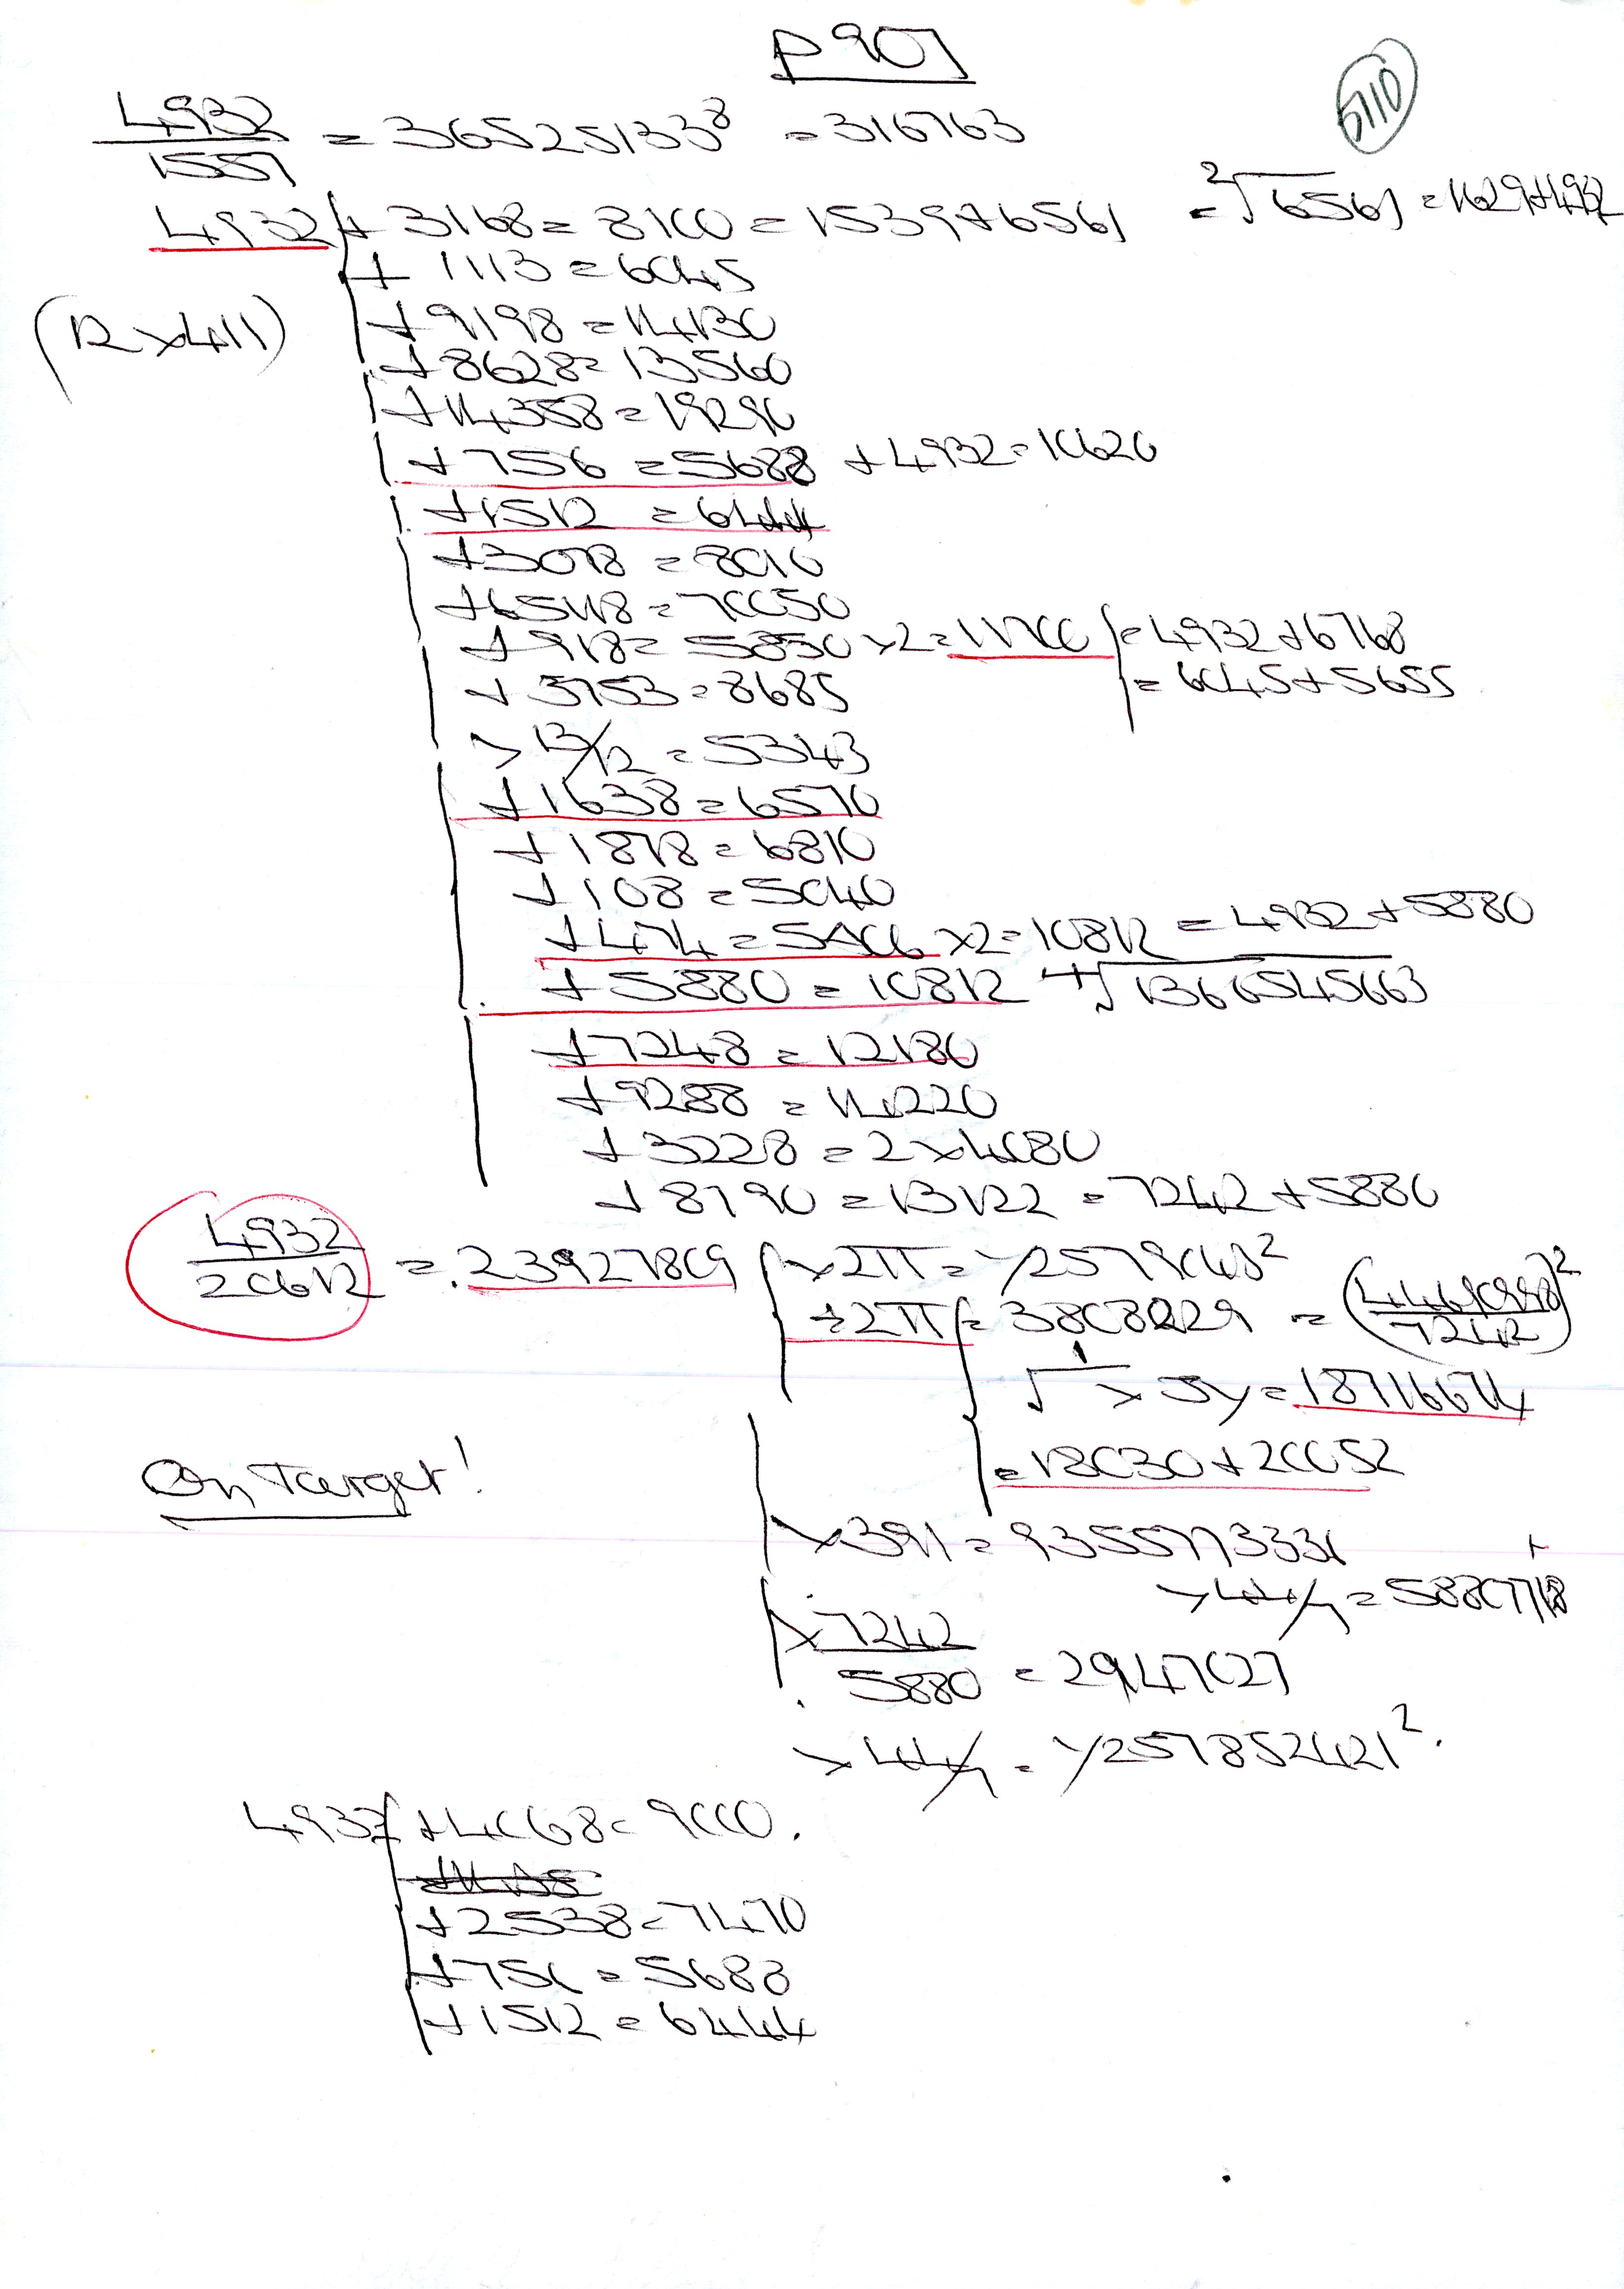 P 907
5110
4932/1557 = 36525133⁸ = 316763
4932 + 3168 = 8100 = 1539 + 6561 = ²√6561 = 1629 + 4932
+ 1113 = 6045
(12 × 411)
+ 9198 = 14130
+ 8628 = 13560
+ 14358 = 19290
+ 756 = 5688 + 4932 = 10620
+ 1512 = 6444
+ 3078 = 8010
+ 65118 = 70050
+ 918 = 5850 × 2 = 11700 = 4932 + 6768
= 6045 + 5655
+ 3753 = 8685
× 13/12 = 5343
+ 1638 = 6570
+ 1878 = 6810
+ 108 = 5040
+ 474 = 5406 × 2 = 10812 = 4932 + 5880
+ 5880 = 10812 ⁴√1366545663
+ 7248 = 12180
+ 9288 = 14220
+ 3228 = 2 × 4080
+ 8190 = 13122 = 7242 + 5880
4932/20612 = .23927809 × 2π = y2579048²
÷ 2π = 3808229 =
√ × 5y = 18716674
= 18030 + 20052
On Target!
× 391 = 935577333
× 44/7 =
× 7242/5880 = 29471027
× 44/7 = y257852421².
4932 + 4068 = 9000.
+ 2538 = 7470
+ 756 = 5688
+ 1512 = 6444